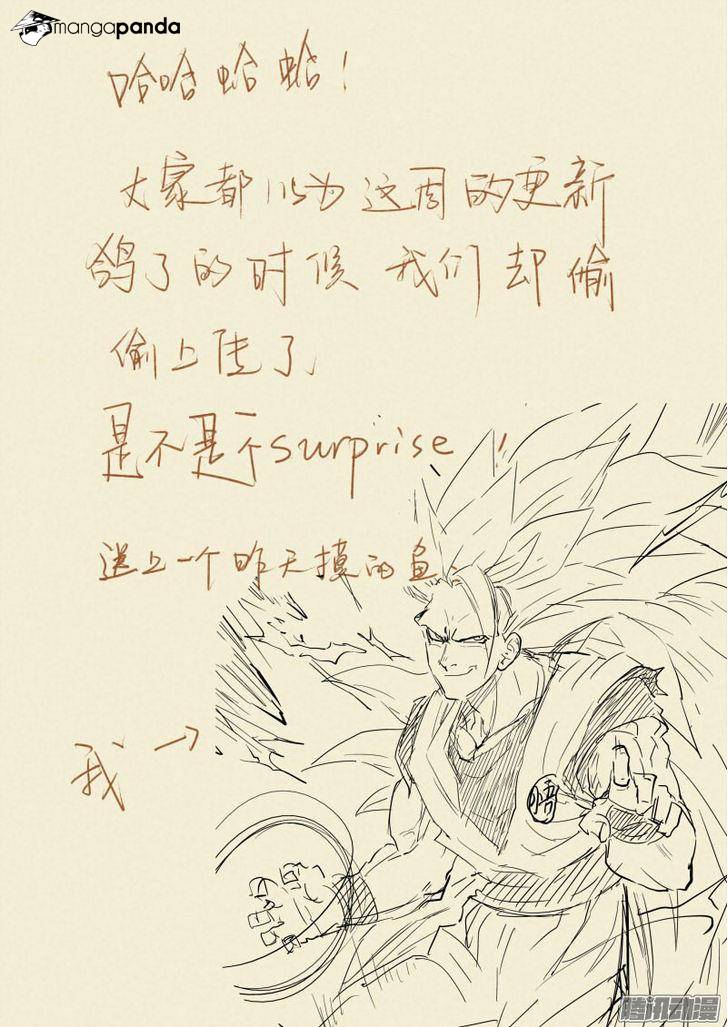 mangapanda
哈哈蛤蛤!
大家都以为这周的更新
鸽了的时候 我们却偷
偷上传了
是不是个surprise!!
送上一个昨天摸的鱼.
我→
悟
腾讯动漫